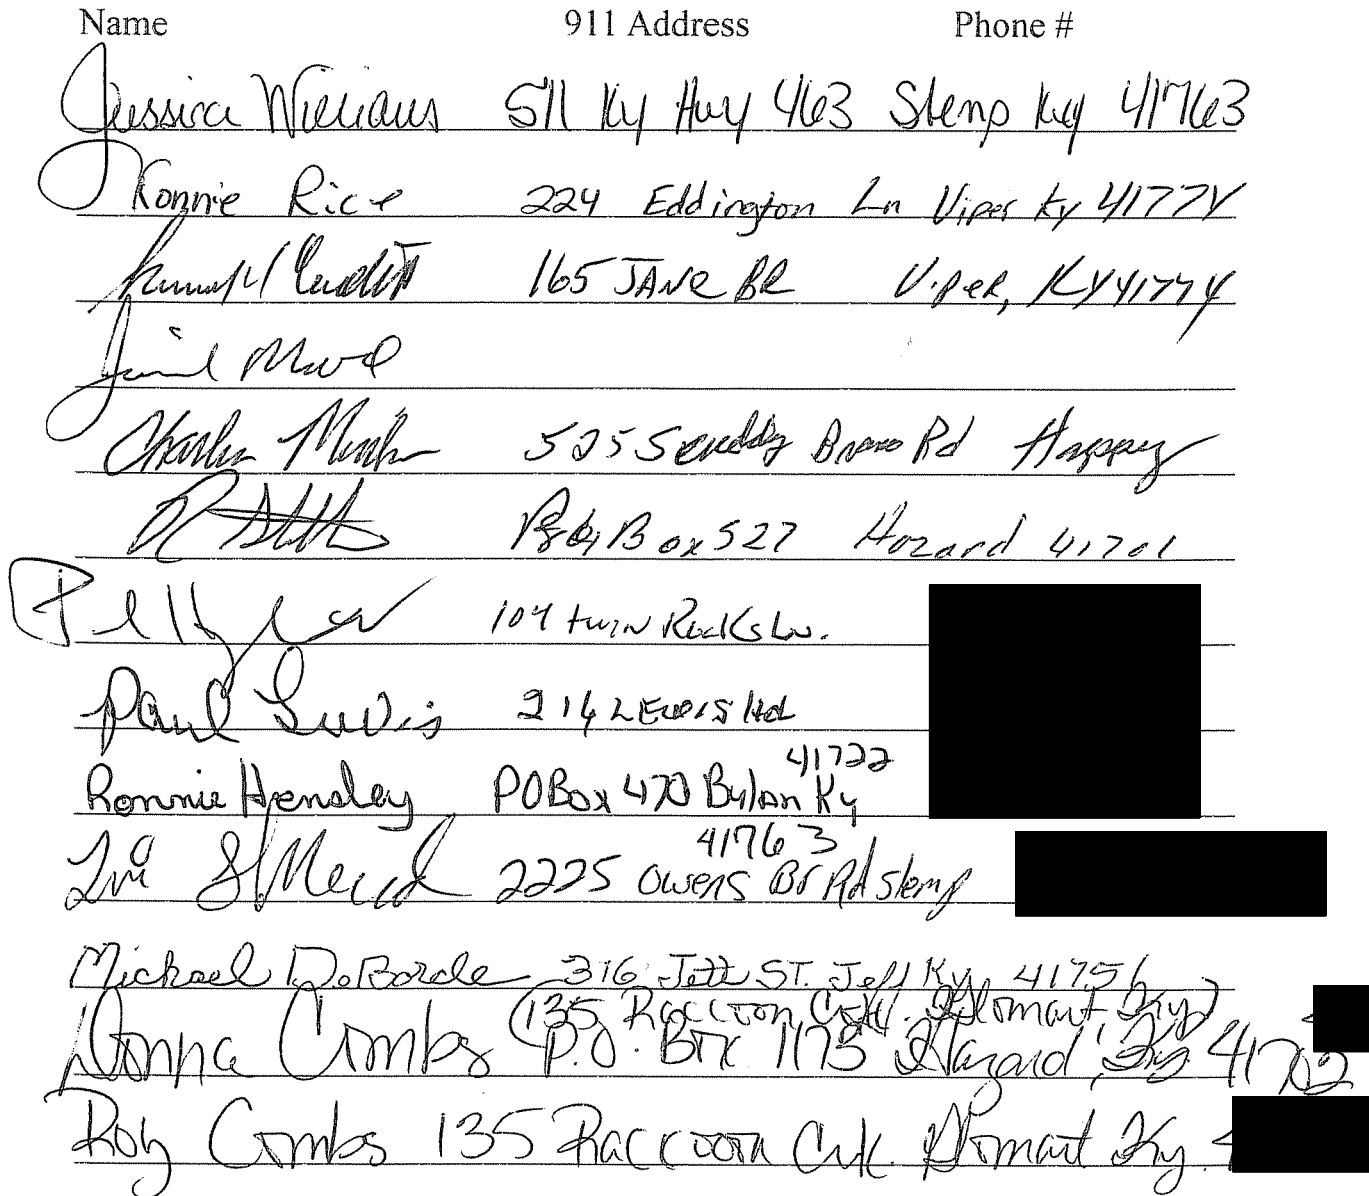 Name 911 Address Phone #
Jessica Williams 511 Ky Hwy 463 Slemp Ky 41763
Ronnie Rice 224 Eddington Ln Viper Ky 41774
165 JANE BR Viper, KY 41774
Charles 525 Scuddy Branch Rd Happy
Box 527 Hazard 41701
104 twin Rocks Ln.
Paul Lewis 216 LEWIS Hol
41722
Ronnie Hensley PO Box 470 Bulan Ky
41763
2225 Owens Br Rd Slemp
Michael DeBorde 316 Jeff ST. Jeff Ky 41751
(135 Raccoon Crk. Glomart, Ky)
Donna Combs P.O. Box 1175 Hazard, Ky 41702
Roy Combs 135 Raccoon Crk. Glomart Ky. 4